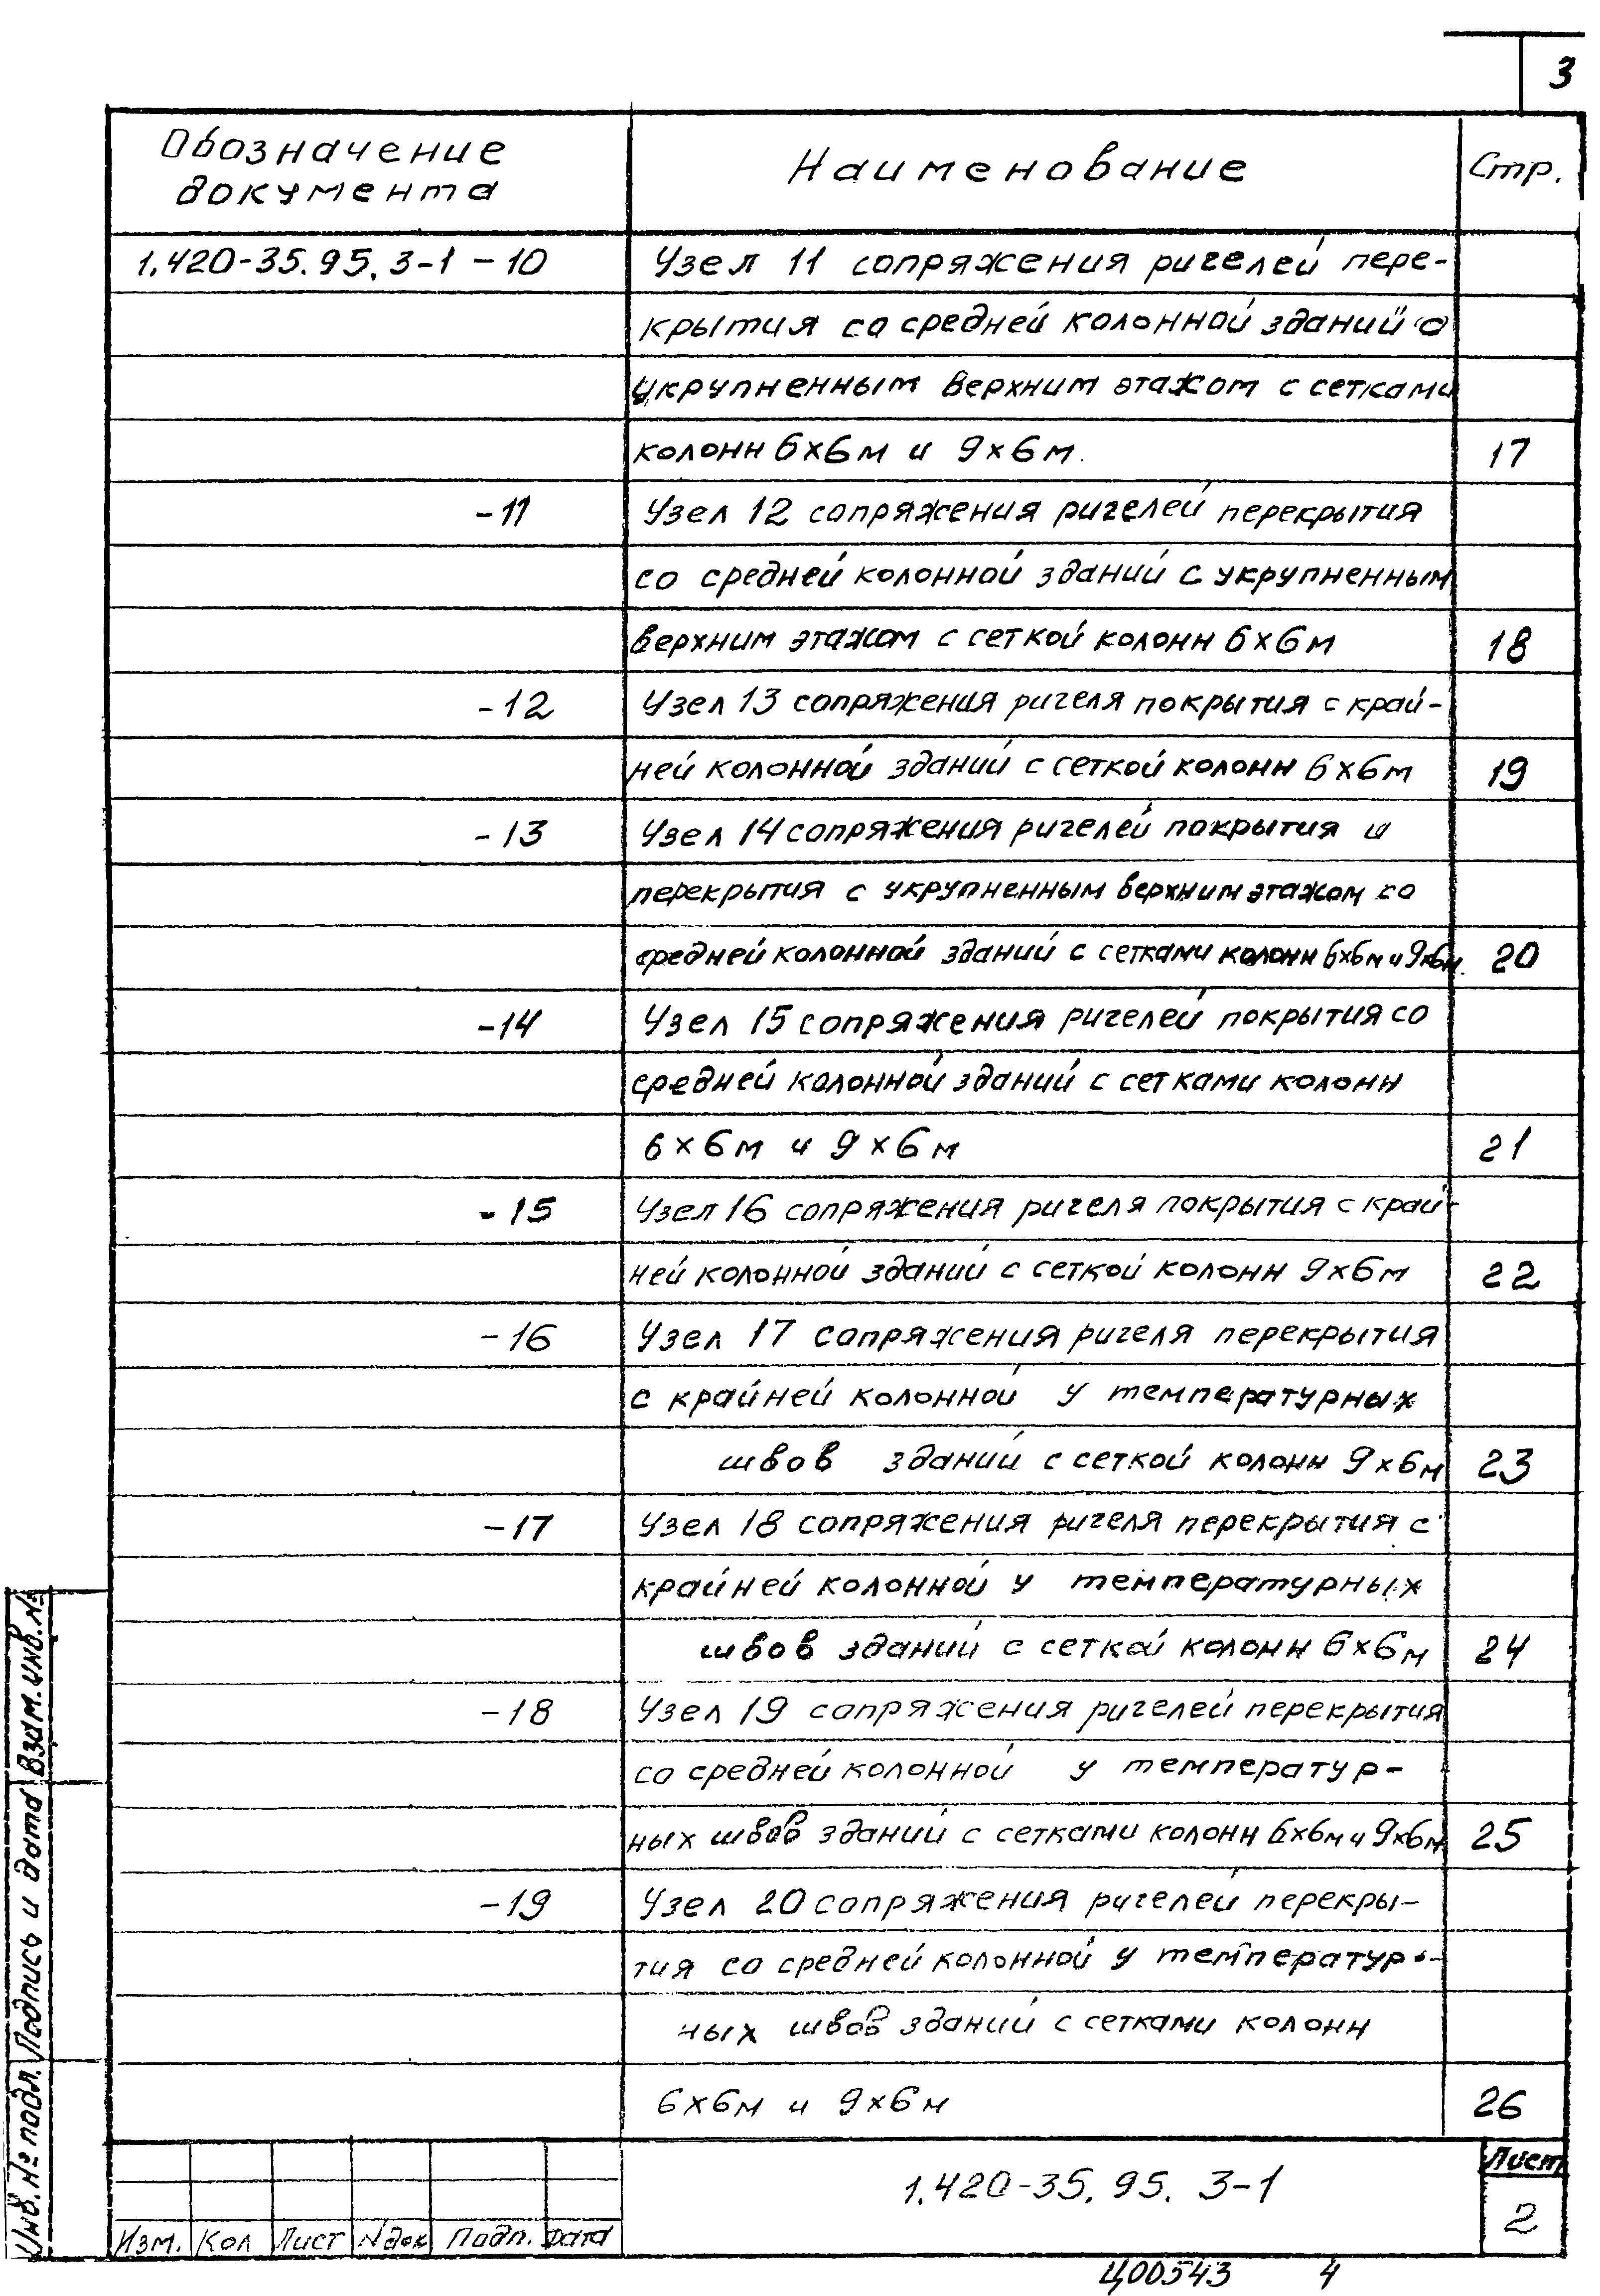 3
Обозначение документа Наименование Стр.
1.420-35.95.3-1 -10 Узел 11 сопряжения ригелей пере-
крытия со средней колонной зданий с
укрупненным верхним этажом с сетками
колонн 6х6м и 9х6м. 17
-11 Узел 12 сопряжения ригелей перекрытия
со средней колонной зданий с укрупненным
верхним этажом с сеткой колонн 6х6м 18
-12 Узел 13 сопряжения ригеля покрытия с край-
ней колонной зданий с сеткой колонн 6х6м 19
-13 Узел 14 сопряжения ригелей покрытия и
перекрытия с укрупненным верхним этажом со
средней колонной зданий с сетками колонн 6х6м и 9х6м. 20
-14 Узел 15 сопряжения ригелей покрытия со
средней колонной зданий с сетками колонн
6х6м и 9х6м 21
-15 Узел 16 сопряжения ригеля покрытия с край-
ней колонной зданий с сеткой колонн 9х6м 22
-16 Узел 17 сопряжения ригеля перекрытия
с крайней колонной у температурных
швов зданий с сеткой колонн 9х6м 23
-17 Узел 18 сопряжения ригеля перекрытия с
крайней колонной у температурных
швов зданий с сеткой колонн 6х6м 24
-18 Узел 19 сопряжения ригелей перекрытия
со средней колонной у температур-
ных швов зданий с сетками колонн 6х6м и 9х6м 25
-19 Узел 20 сопряжения ригелей перекры-
тия со средней колонной у температур-
ных швов зданий с сетками колонн
6х6м и 9х6м 26
Инв. № подл. Подпись и дата Взам. инв. №
Изм. Кол Лист Nдок Подп. Дата
1.420-35.95.3-1
Лист
2
Ц00543 4